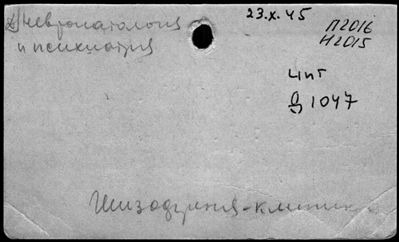 Невропатология
и психиатрия
23.X.45
П2016
Н2015
чпт
1047
Шизофрения-клиник